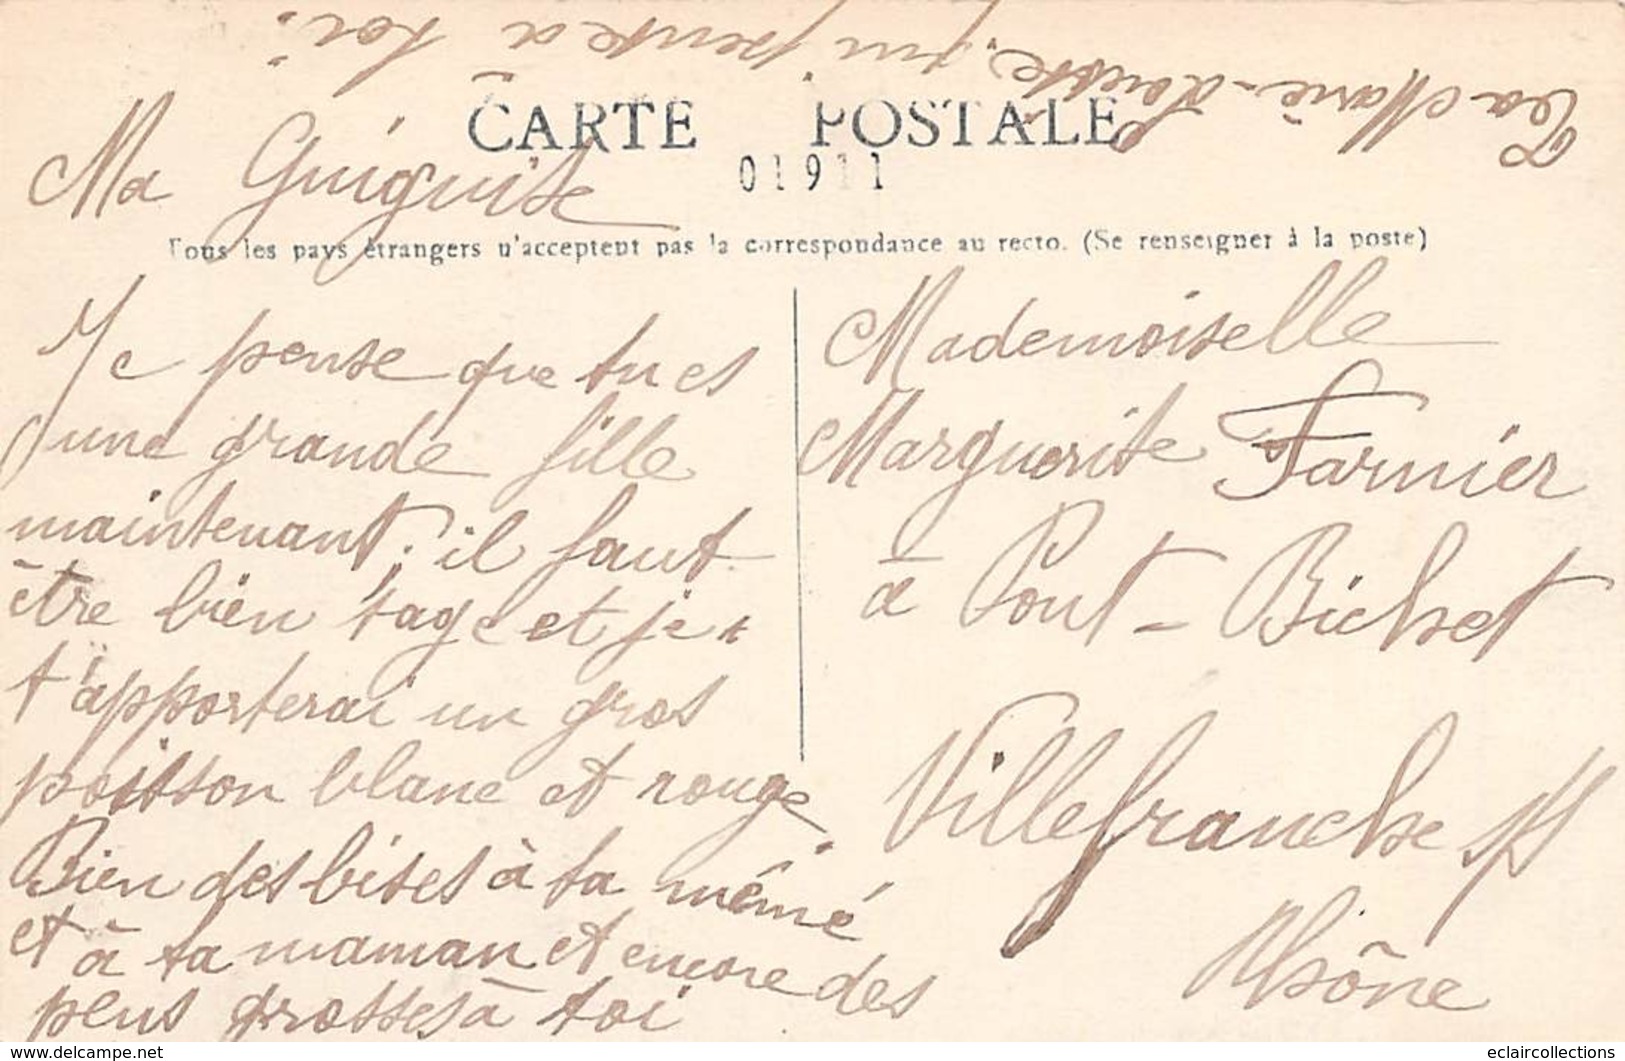 CARTE POSTALE
01911
Tous les pays étrangers n'acceptent pas la correspondance au recto. (Se renseigner à la poste)
Ma Guiguite
Je pense que tu es
une grande fille
maintenant. il faut
être bien sage et je
t'apporterai un gros
poisson blanc et rouge.
Bien des bises à ta mémé
et à ta maman et encore des
plus grosses à toi
Ta Marie-Louise, qui pense à toi.
Mademoiselle
Marguerite Farnier
à Pont-Bichet
Villefranche s/S
Rhône
delcampe.net
eclaircollections